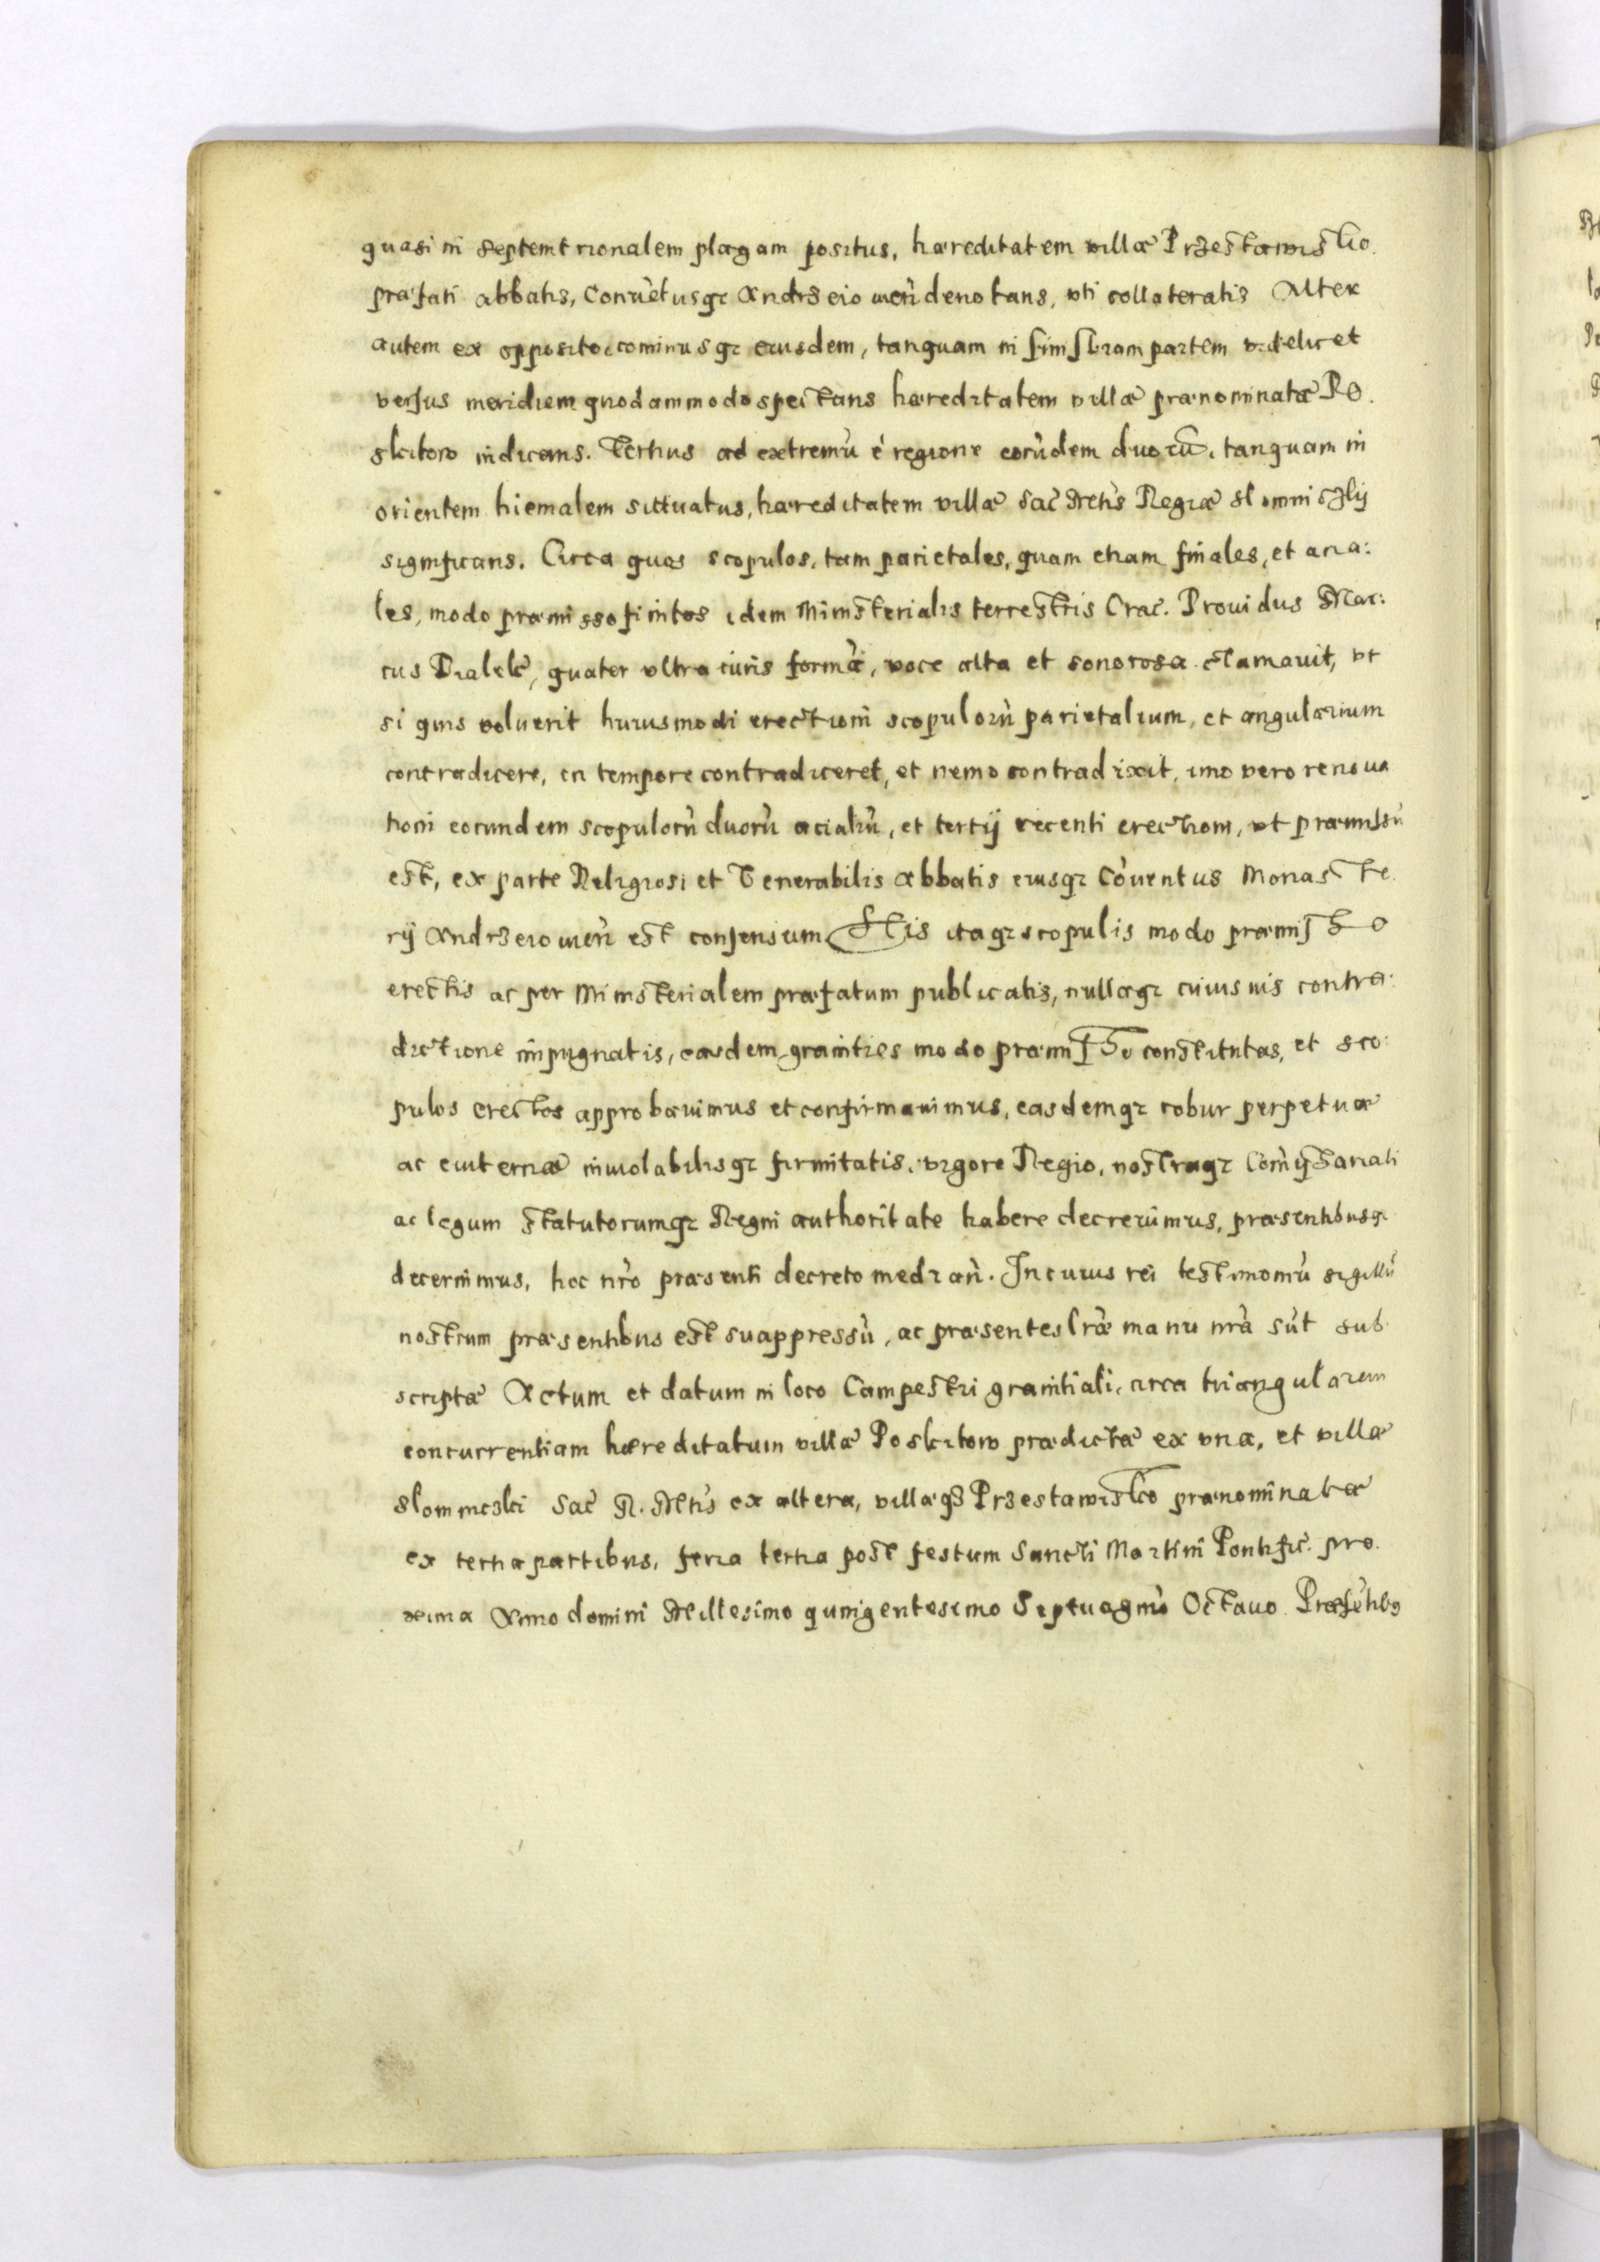 quasi in septemtrionalem plagam positus, hæreditatem villæ Przestawisko.
præfati abbatis, Convẽtusq; Andrzeiovien̄ denotans, vti collateralis Alter
autem ex opposito cominusq; eiusdem, tanquam in sinistram partem videlicet
versus meridiem quodammodo spectans hæreditatem villæ prænominatæ Po.
skitow indicans. Tertius ad extremũ è regione eorũdem duorũ, tanquam in
orientem hiemalem sittuatus, hæreditatem villæ Sac̃ Mtis Regiæ Slomniczkij
significans. Circa quos scopulos, tam parietales, quam etiam finales, et acia:
les, modo præmisso finitos idem Ministerialis terrestris Crac̃. Providus Mar:
cus Pialek, quater vltra iuris formã, voce alta et sonorosa clamavit, vt
si quis voluerit huiusmodi erectioni scopulorũ parietalium, et angularium
contradicere, in tempore contradiceret, et nemo contradixit, imo vero renoua
tioni eorundem scopulorũ duorũ acialiũ, et tertij recenti erectioni, vt præmissũ
est, ex parte Religiosi et Venerabilis Abbatis eiusq; Cõventus Monaste.
rij Andrzeiovien̄ est consensum. His itaq; scopulis modo præmisso
erectis ac per Ministerialem præfatum publicatis, nullaq; cuiusuis contra:
dictione impugnatis, easdem granities modo præmisso constitutas, et sco:
pulos erectos approbauimus et confirmauimus, easdemq; robur perpetuæ
ac euiternæ inuiolabilisq; firmitatis, vigore Regio, nostraq; Com̃issariali
ac legum statutorumq; Regni authoritate habere decreuimus, præsentibusq;
decernimus, hoc nr̃o præsenti decreto median̄. In cuius rei testimoniũ sigillũ
nostrum præsentibus est suappressũ, ac præsentes lr̃æ manu nr̃a sũt sub
scriptæ Actum et datum in loco Campestri granitiali, circa triangularem
concurrentiam hæreditatum villæ Poskitow prædictæ ex vna, et villæ
Slomniczki Sac̃ R. Mtis ex altera, villæq; Przestawisko prænominatæ
ex tertia partibus, feria tertia post festum Sancti Martini Pontific̃. pro.
xima Anno domini Millesimo quingentesimo Septuagmo Octauo. Præsẽtib9